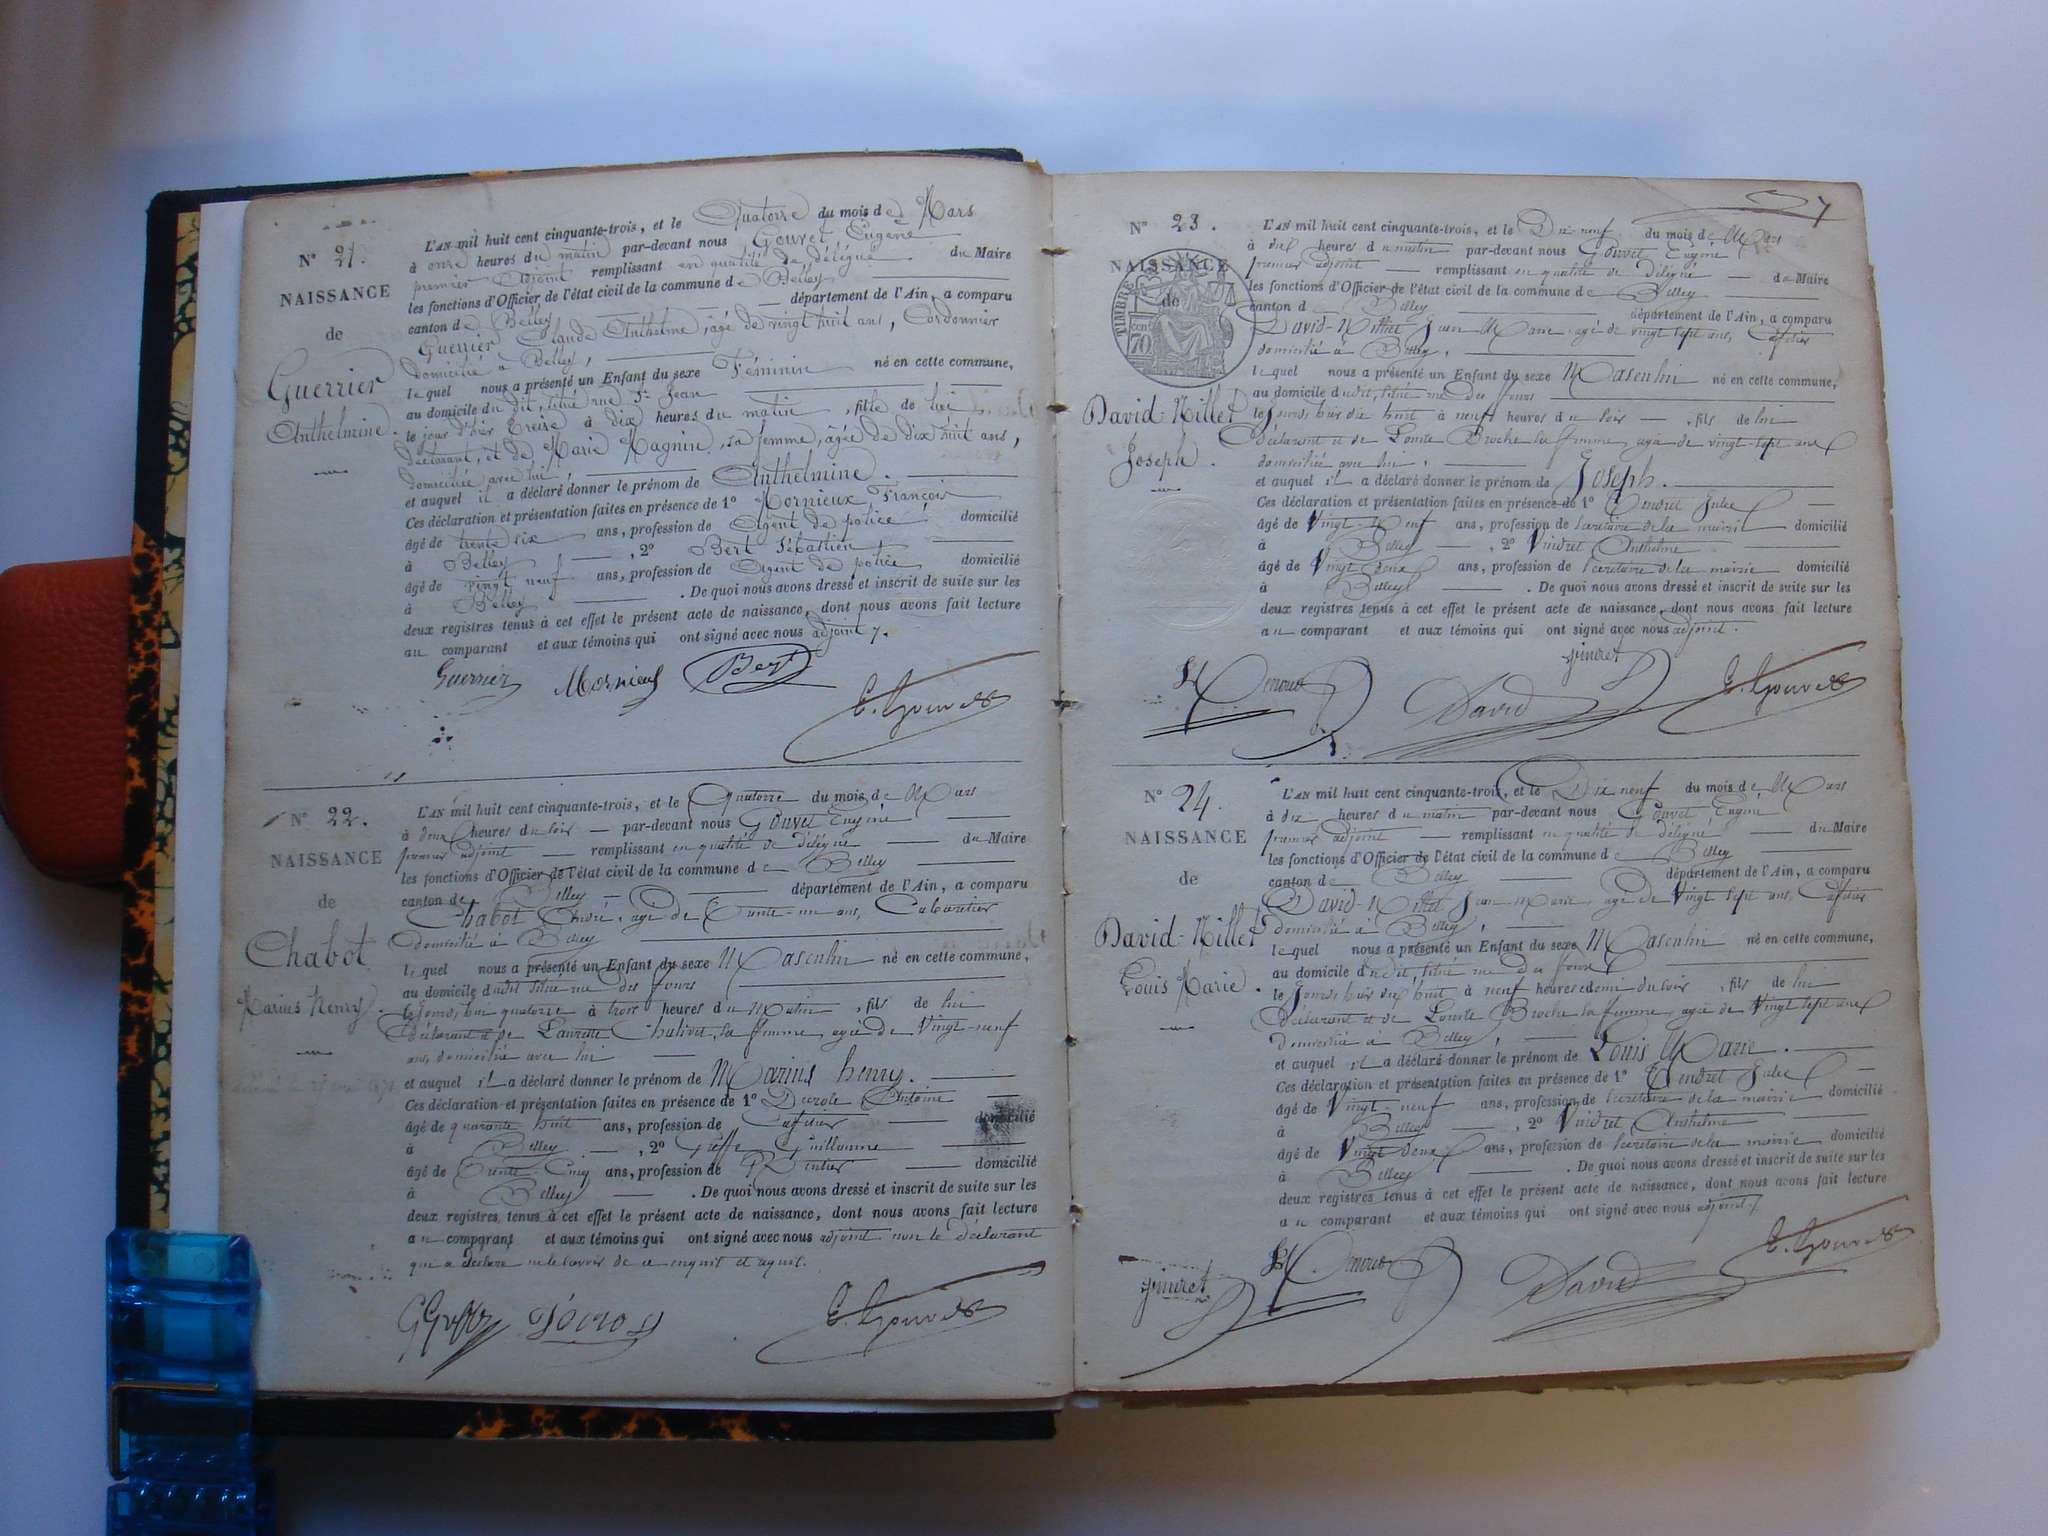 N° 21.
NAISSANCE
de
Guerrier
Anthelmine.
L'AN mil huit cent cinquante-trois, et le Quatorze du mois de Mars
à onze heures du matin par-devant nous Gouvet Eugène
premier adjoint remplissant en qualité de délégué du Maire
les fonctions d'Officier de l'état civil de la commune de Belley
canton de Belley département de l'Ain, a comparu
Guerrier Claude Anthelme, âgé de vingt huit ans, Cordonnier
domicilié à Belley,
lequel nous a présenté un Enfant du sexe Féminin né en cette commune,
au domicile du dit, situé rue St Jean
le jour d'hier treize à dix heures du matin, fille de lui
déclarant, et de Marie Magnin, sa femme, âgée de dix huit ans,
domiciliée avec lui,
et auquel il a déclaré donner le prénom de Anthelmine.
Ces déclaration et présentation faites en présence de 1° Mornieux François
âgé de trente six ans, profession de Agent de police domicilié
à Belley, 2° Bert Sébastien
âgé de vingt neuf ans, profession de Agent de police domicilié
à Belley. De quoi nous avons dressé et inscrit de suite sur les
deux registres tenus à cet effet le présent acte de naissance, dont nous avons fait lecture
au comparant et aux témoins qui ont signé avec nous adjoint.
Guerrier Mornieux Bert
E. Gouvet
N° 22.
NAISSANCE
de
Chabot
Marius henry.
L'AN mil huit cent cinquante-trois, et le Quatorze du mois de Mars
à deux heures du soir par-devant nous Gouvet Eugène
premier adjoint remplissant en qualité de délégué du Maire
les fonctions d'Officier de l'état civil de la commune de Belley
canton de Belley département de l'Ain, a comparu
Chabot André, agé de trente-un ans, Cabaretier
domicilié à Belley
lequel nous a présenté un Enfant du sexe Masculin né en cette commune,
au domicile dudit situé rue des fours
le jour, quatorze à trois heures du matin, fils de lui
déclarant et de Laurette Chalivet, sa femme, agée de Vingt-neuf
ans, domiciliée avec lui
et auquel il a déclaré donner le prénom de Marius henry.
Ces déclaration et présentation faites en présence de 1° Antoine
âgé de quarante huit ans, profession de Cafetier domicilié
à Belley, 2° Guillaume
âgé de trente-Cinq ans, profession de Rentier domicilié
à Belley. De quoi nous avons dressé et inscrit de suite sur les
deux registres tenus à cet effet le présent acte de naissance, dont nous avons fait lecture
au comparant et aux témoins qui ont signé avec nous adjoint non le déclarant
qui a déclaré ne le savoir de ce enquit et aquit.
E. Gouvet
7
N° 23.
NAISSANCE
de
TIMBRE
70 cent
David-Millet
Joseph.
L'AN mil huit cent cinquante-trois, et le Dix neuf du mois de Mars
à dix heures du matin par-devant nous Gouvet Eugène
premier adjoint remplissant en qualité de délégué du Maire
les fonctions d'Officier de l'état civil de la commune de Belley
canton de Belley département de l'Ain, a comparu
David-Millet Jean Marie, agé de vingt sept ans, Cafetier
domicilié à Belley,
lequel nous a présenté un Enfant du sexe Masculin né en cette commune,
au domicile dudit, situé rue des fours
le jour d'hier dix huit à neuf heures du soir, fils de lui
déclarant et de Broche sa femme, agée de vingt-sept ans
domiciliée avec lui,
et auquel il a déclaré donner le prénom de Joseph.
Ces déclaration et présentation faites en présence de 1° Tendret Jules
âgé de Vingt-Neuf ans, profession de Secretaire de la mairie domicilié
à Belley, 2° Vindret Anthelme
âgé de Vingt deux ans, profession de Secretaire de la mairie domicilié
à Belley. De quoi nous avons dressé et inscrit de suite sur les
deux registres tenus à cet effet le présent acte de naissance, dont nous avons fait lecture
au comparant et aux témoins qui ont signé avec nous adjoint.
David E. Gouvet
N° 24.
NAISSANCE
de
David-Millet
Louis Marie.
L'AN mil huit cent cinquante-trois, et le Dix neuf du mois de Mars
à dix heures du matin par-devant nous Gouvet Eugène
premier adjoint remplissant en qualité de délégué du Maire
les fonctions d'Officier de l'état civil de la commune de Belley
canton de Belley département de l'Ain, a comparu
David-Millet Jean Marie, agé de Vingt sept ans, Cafetier
domicilié à Belley,
lequel nous a présenté un Enfant du sexe Masculin né en cette commune,
au domicile dudit, situé rue des fours
le jour d'hier dix huit à neuf heures et demi du soir, fils de lui
déclarant et de Broche sa femme, agée de Vingt sept ans
domiciliée à Belley,
et auquel il a déclaré donner le prénom de Louis Marie.
Ces déclaration et présentation faites en présence de 1° Tendret Jules
âgé de Vingt-neuf ans, profession de Secretaire de la mairie domicilié
à Belley, 2° Vindret Anthelme
âgé de Vingt deux ans, profession de Secretaire de la mairie domicilié
à Belley. De quoi nous avons dressé et inscrit de suite sur les
deux registres tenus à cet effet le présent acte de naissance, dont nous avons fait lecture
au comparant et aux témoins qui ont signé avec nous adjoint.
David E. Gouvet